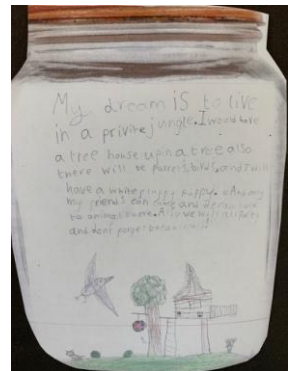 My dream is to live
in a privite jungle. I would have
a tree house up in a tree also
there will be parrots, birds, and I will
have a white puppy. And my
my friends can come and
to animals there. Also we will
and dont forget